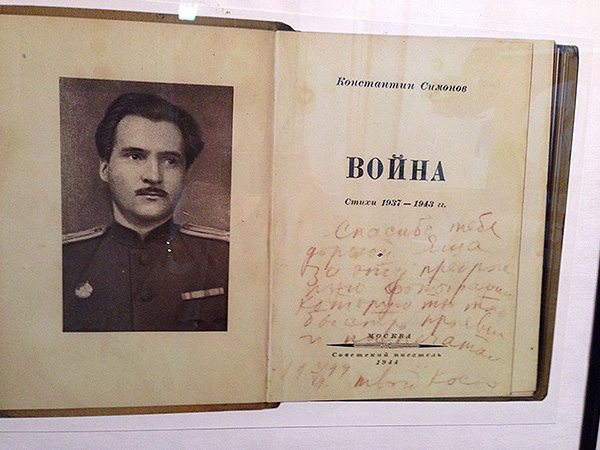 Константин Симонов
ВОЙНА
Стихи 1937 — 1943 гг.
Спасибо тебе
дорогой Яша
за эту
фотографию
которую ты так
быстро проявил
и напечатал
МОСКВА
Советский писатель
1944
твой Костя